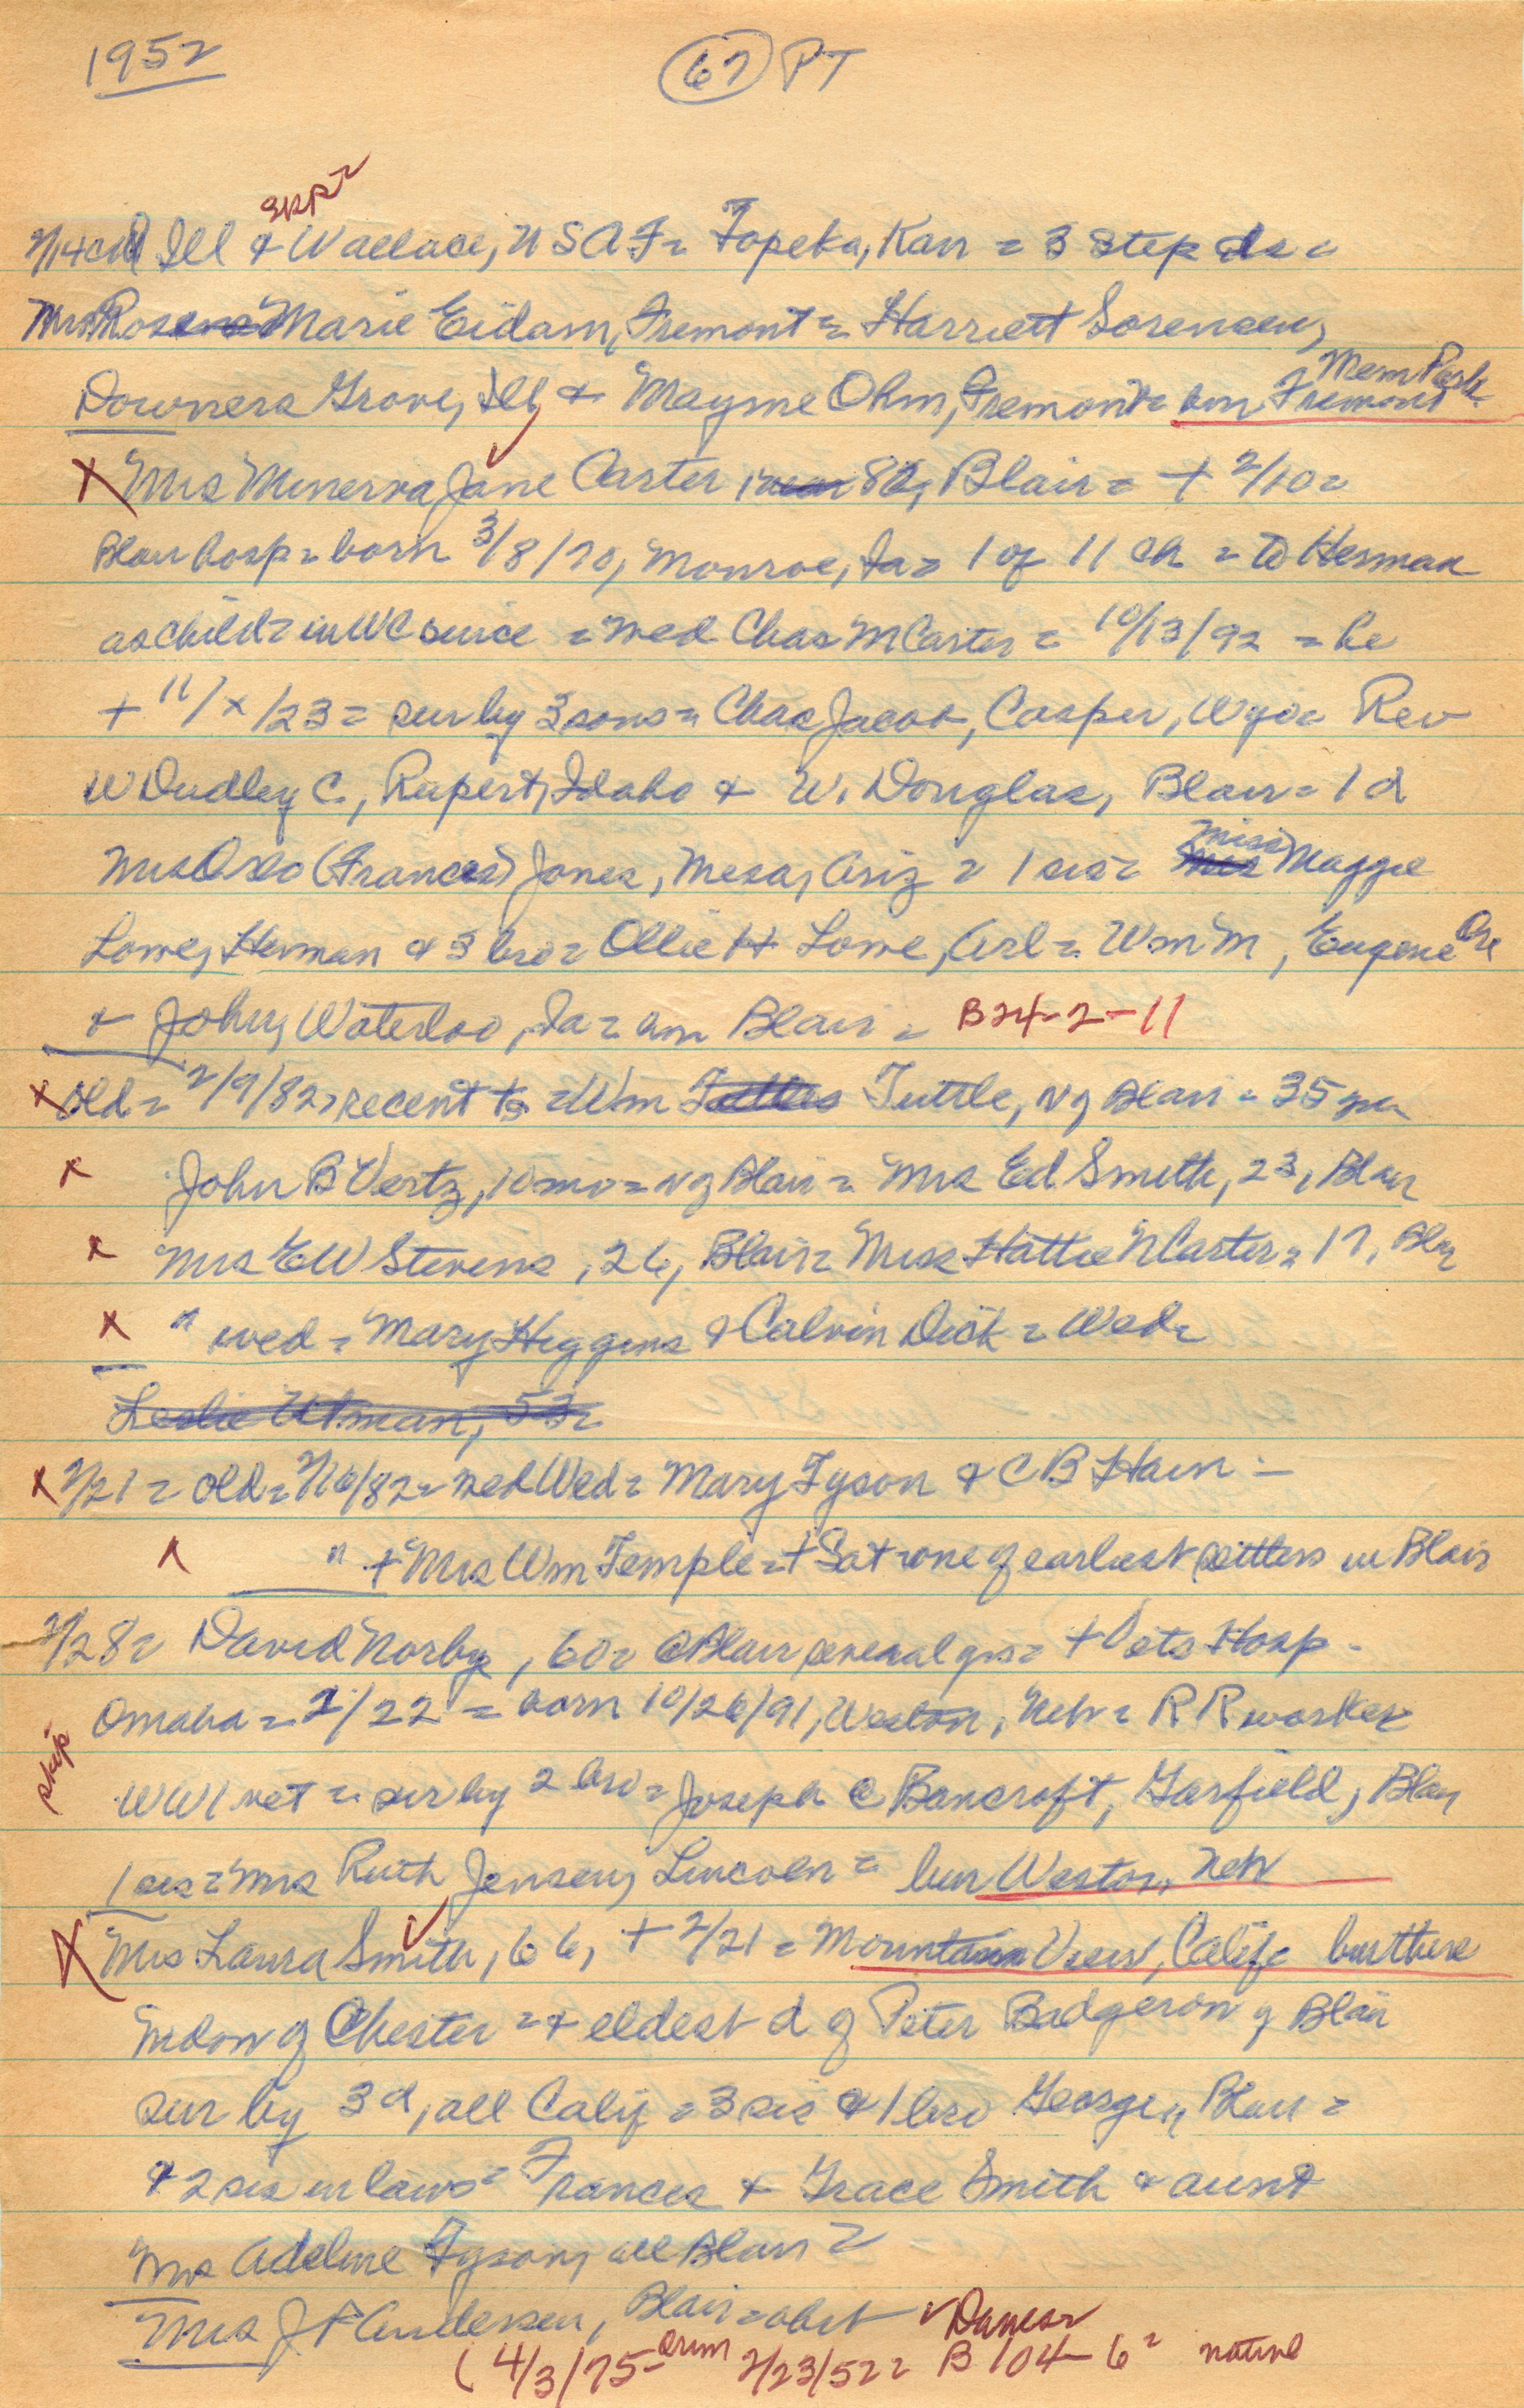 1952
67 PT
skip
2/14 ctd Ill & Wallace, USAF = Topeka, Kan = 3 step ds =
Mrs Rose Marie Eidam, Fremont = Harriett Sorensen,
Mem Park
Downers Grove, Ill & Mayme Ohm, Fremont = bur Fremont
X Mrs Minerva Jane Carter 82, Blair = + 2/10 =
Blair hosp = born 3/8/70, Monroe, Ia = 1 of 11 ch = to Herman
as child = in WC since = wed Chas M Carter = 10/13/92 = he
+ 11/x/23 = sur by 3 sons = Chas Jacob, Casper, Wyo = Rev
W Dudley C., Rupert, Idaho & W. Douglas, Blair = 1 d
Mrs (Frances) Jones, Mesa, Ariz = 1 sis = Miss Maggie
Lowe, Herman & 3 bro = Ollie H Lowe, Arl = Wm M, Eugene Ore
& John, Waterloo, Ia = bur Blair = B24-2-11
X old = 2/9/82 = recent +s = Wm Tuttle, ng Blair = 35 yrs
X John B Vertz, 10 mo = ng Blair = Mrs Ed Smith, 23, Blair
X Mrs EW Stevens, 26, Blair = Miss Hattie N Carter = 17, Blair
X " wed = Mary Higgins & Calvin Dick = Wed =
Leslie Utman, 53 =
X 2/21 = old = 2/16/82 = wed Wed = Mary Tyson & C B Hain =
X " + Mrs Wm Temple = + Sat = one of earliest settlers in Blair
2/28 = David Norby, 60 = @ Blair several yrs = + Vets Hosp -
Omaha = 2/22 = born 10/26/91, Weston, Neb = RR worker
skip
WW1 vet = sur by 2 bro = Joseph @ Bancroft, Garfield, Blair
1 sis = Mrs Ruth Jensen, Lincoln = bur Weston, Neb
X Mrs Laura Smith, 66, + 2/21 = Mountain View, Calif = bur there
widow of Chester = & eldest d of Peter Badgerow of Blair
sur by 3 d, all Calif = 3 sis & 1 bro George, Blair =
& 2 sis in laws = Frances & Grace Smith & aunt
Mrs Adeline Tyson, all Blair =
Mrs J P Andersen, Blair = obit ✓ Danes ✓
(4/3/75 - 2/23/52 = B 104-6 = native